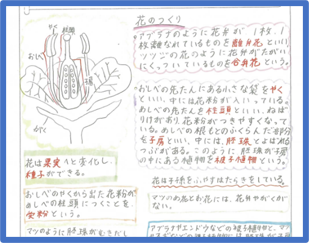 やく
柱頭
おしべ
子房
がく
花は果実へと変化し、
種子ができる。
おしべのやくから出た花粉が
めしべの柱頭につくことを
受粉という。
マツのように胚珠がむきだし
花のつくり
アブラナのように花弁が1枚1
枚離れているものを離弁花といい、
ツツジの花のように花弁がたがいに
くっついているものを合弁花という。
おしべの先たんにある小さな袋をやく
といい、中には花粉が入っている。
めしべの先たんを柱頭といい、ねば
りけがあり、花粉がつきやすくなって
いる。めしべの根もとのふくらんだ部分
を子房といい、中には、胚珠とよばれる
粒がある。このように胚珠が子房
の中にある植物を被子植物という。
花は子孫をふやすはたらきをしている。
マツのめ花とお花には、花弁やがくが
ない。
アブラナやエンドウなどの被子植物や、マツ